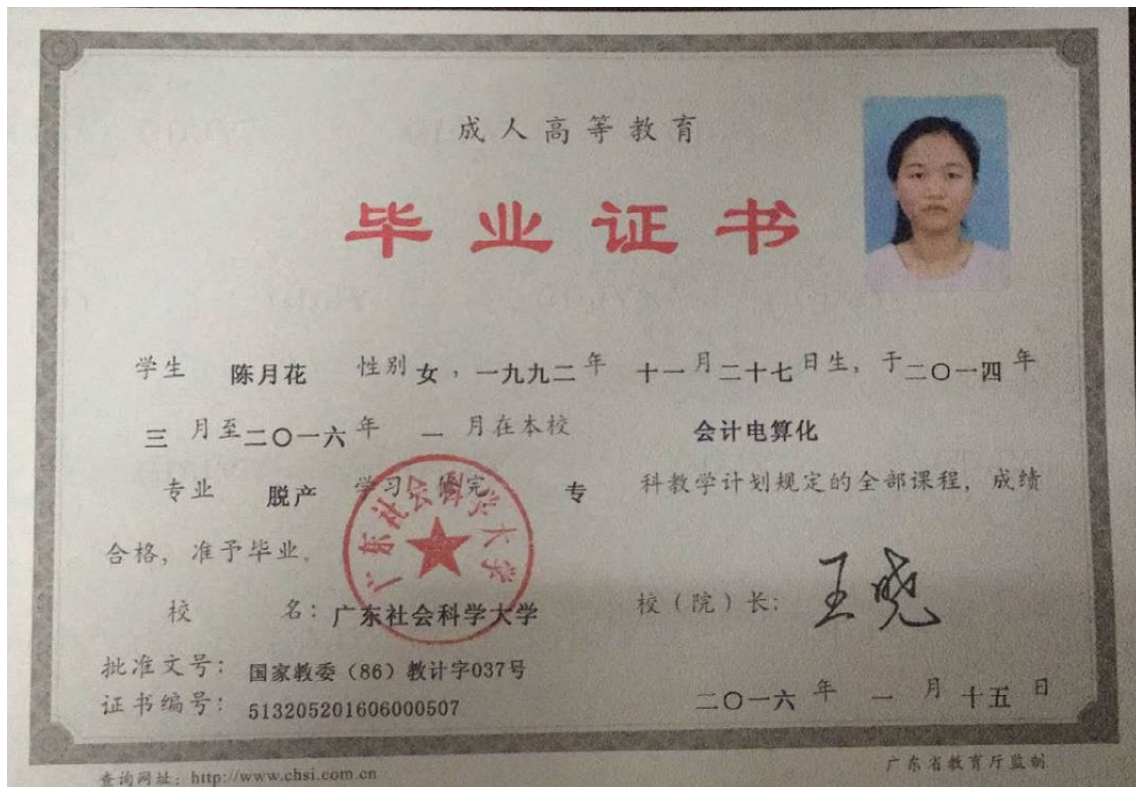 成人高等教育
毕业证书
学生 陈月花 性别 女，一九九二年 十一月二十七日生，于二〇一四年
三月至二〇一六年 一月在本校 会计电算化
专业 脱产 学习，修完 专 科教学计划规定的全部课程，成绩
合格，准予毕业。
广东社会科学大学
校 名：广东社会科学大学 校（院）长：王晓
批准文号：国家教委（86）教计字037号
证书编号：513205201606000507 二〇一六年 一月十五日
查询网址：http://www.chsi.com.cn 广东省教育厅监制